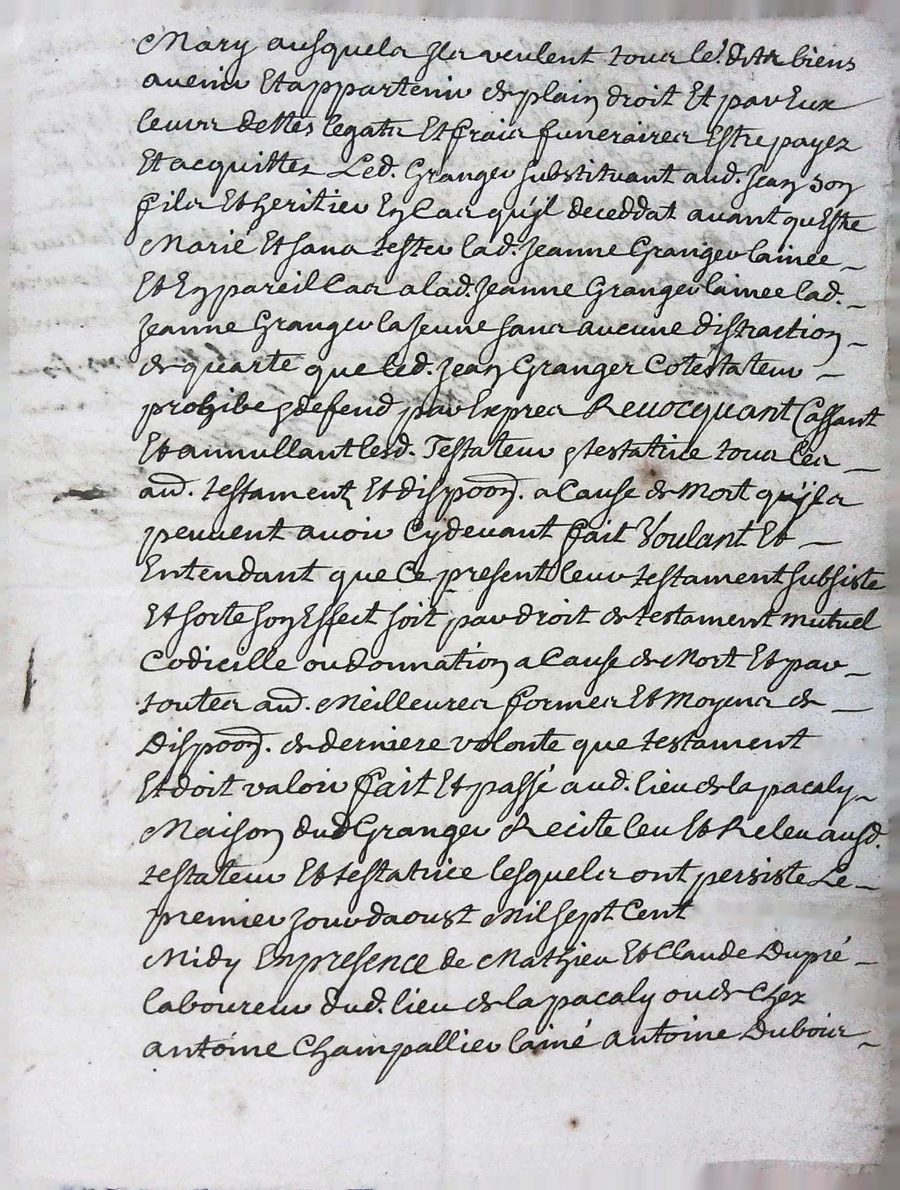 Mary ausquels ils veulent tous lesdits biens
avenir Et appartenir de plain droit Et par Eux
leurs dettes legats Et frais funeraires Estre payez
Et acquittes Led. Granger substituant aud. Jean son
fils Et heritier En Cas qu'il deceddat avant qu'Estre
Marié Et sans tester lad. Jeanne Granger lainée
Et En pareil Cas a lad. Jeanne Granger lainee lad.
Jeanne Granger la Jeune sans aucune distraction
de quarte que led. Jean Granger Cotestateur
prohibe & defend par Expres Revocquant Cassant
Et annullant lesd. Testateur & testatrice tous Ces
au͠. testament Et dispoon͠. a Cause de Mort qu'ils
peuvent avoir Cydevant fait Voulant Et
Entendant que Ce present leur testament subsiste
Et sorte son Effect soit par droit de testament mutuel
Codicille ou donnation a Cause de Mort Et par
toutes au͠. Meilleures formes Et Moyens de
Dispoon͠. de derniere volonte que testament
Et doit valoir fait Et passé aud. lieu de la pacaly
Maison dud Granger Recite leu Et Releu ausd.
testateur Et testatrice lesquels ont persiste Le
premier jour daoust Mil sept Cent
Midy En presence de Mathieu Et Claude Dupré
laboureur dud. lieu de la pacaly ou de chez
antoine Champallier lainé antoine Dubois